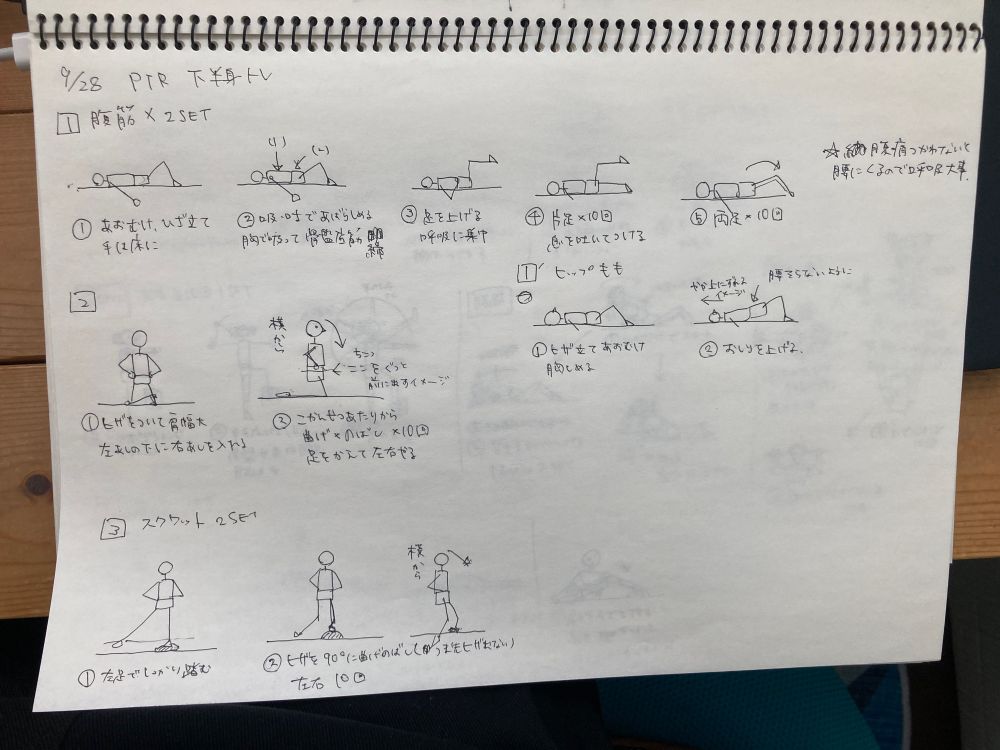 9/28 PTR 下半身トレ
1 腹筋 × 2SET
(1)
(2)
① あおむけ、ひざ立て
手は床に
② 吸・吐であばらしめる
胸で吸って骨盤底筋
③ 足を上げる
呼吸に集中
④ 片足×10回
息を吐いてつける
⑤ 両足×10回
☆ 腹つかわないと
腰にくるので呼吸大事
1' ヒップもも
① ヒザ立てあおむけ
胸しめる
やや上にずれる
イメージ
腰そらないように
② おしりを上げる。
2
① ヒザをついて肩幅大
左あしの下に右あしを入れる
横から
ちこつ
ここをぐっと
前に出すイメージ
③ こかんせつあたりから
曲げ×のばし ×10回
足をかえて左右やる
3 スクワット 2SET
① 左足でしっかり踏む
横から
② ヒザを90°に曲げのばし
左右 10回